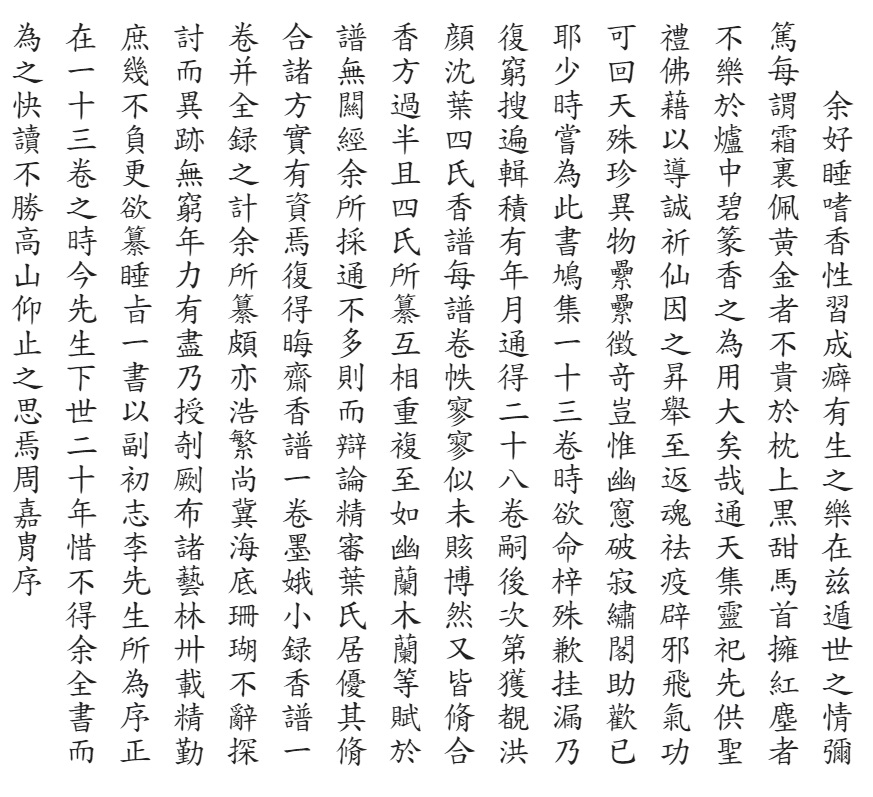 余好睡嗜香性習成癖有生之樂在茲遁世之情彌
篤每謂霜裏佩黄金者不貴於枕上黒甜馬首擁紅塵者
不樂於爐中碧篆香之為用大矣哉通天集靈祀先供聖
禮佛藉以導誠祈仙因之昇舉至返魂祛疫辟邪飛氣功
可回天殊珍異物纍纍徴竒豈惟幽窻破寂繡閣助歡已
耶少時嘗為此書鳩集一十三卷時欲命梓殊歉挂漏乃
復窮搜遍輯積有年月通得二十八卷嗣後次第獲覩洪
顔沈葉四氏香譜每譜卷帙寥寥似未賅博然又皆脩合
香方過半且四氏所纂互相重複至如幽蘭木蘭等賦於
譜無關經余所採通不多則而辯論精審葉氏居優其脩
合諸方實有資焉復得晦齋香譜一卷墨娥小録香譜一
卷并全録之計余所纂頗亦浩繁尚冀海底珊瑚不辭探
討而異跡無窮年力有盡乃授剞劂布諸藝林卅載精勤
庶幾不負更欲纂睡旨一書以副初志李先生所為序正
在一十三卷之時今先生下世二十年惜不得余全書而
為之快讀不勝高山仰止之思焉周嘉胄序